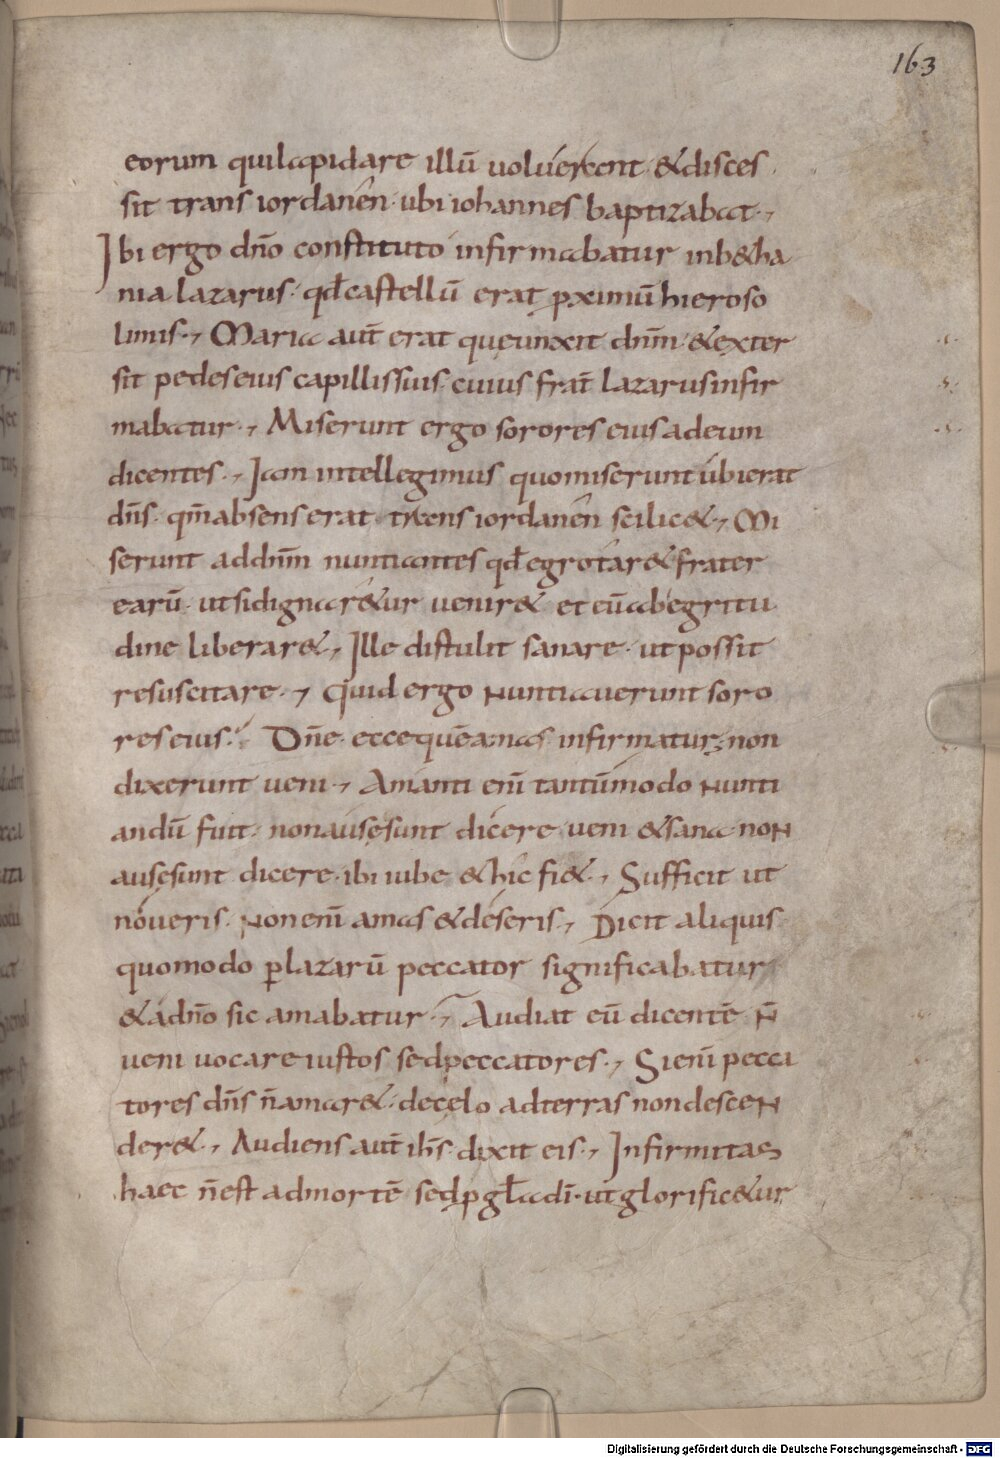 163
eorum quilapidare illū uoluerant &disces
sit trans iordanēn· ubi iohannes baptizabat·,
Ibi ergo dn̄o constituto infirmabatur inb&ha
nia lazarus· qd̄ castellū erat pximū hieroso
limis·, Maria aut̄ erat quęunxit dn̄m &exter
sit pedeseius capillissuis· cuius frat̄ lazarusinfir
mabatur·, Miserunt ergo sorores eiusadeum
dicentes·, Iam intellegimus quomiserunt ubierat
dn̄s· qm̄absens erat· trans iordanēn scilic&·, Mi
serunt addn̄m nuntiantes qd̄ egrotar& frater
earū· utsidignar&ur uenir& et eū abegritu
dine liberar&·, Ille distulit sanare· ut possit
resuscitare·, Quid ergo Nuntiauerunt soro
reseius· Dn̄e· eccequēamas infirmatur; non
dixerunt ueni·, Amanti enī tantūmodo Nunti
andū fuit· nonausęsunt dicere ueni &sana noN
ausęsunt dicere· ibi iube &hic fi&·, Sufficit ut
noueris· Nonenī amas &deseris·, Dicit aliquis
quomodo p̱lazarū peccator significabatur
&adn̄o sic amabatur·, Audiat eū dicentē N̄
ueni uocare iustos sedpeccatores·, Sienī pecca
tores dn̄s n̄amar&· decęlo adterras nondesceN
der&·, Audiens aut̄ ih̄s· dixit eis·, Infirmitas
haec n̄est admortē sedp gl̄a dī· ut glorific&ur
Digitalisierung gefördert durch die Deutsche Forschungsgemeinschaft - DFG